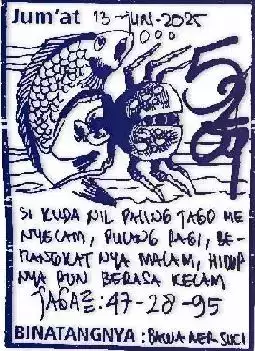 Jum'at 13-JUNI-2025
5201
SI KUDA NIL PALING JAGO ME
NYELAM, PULANG PAGI, BE-
RANGKAT NYA MALAM, HIDUP
NYA PUN BERASA KELAM
JAGA²: 47-28-95
BINATANGNYA :